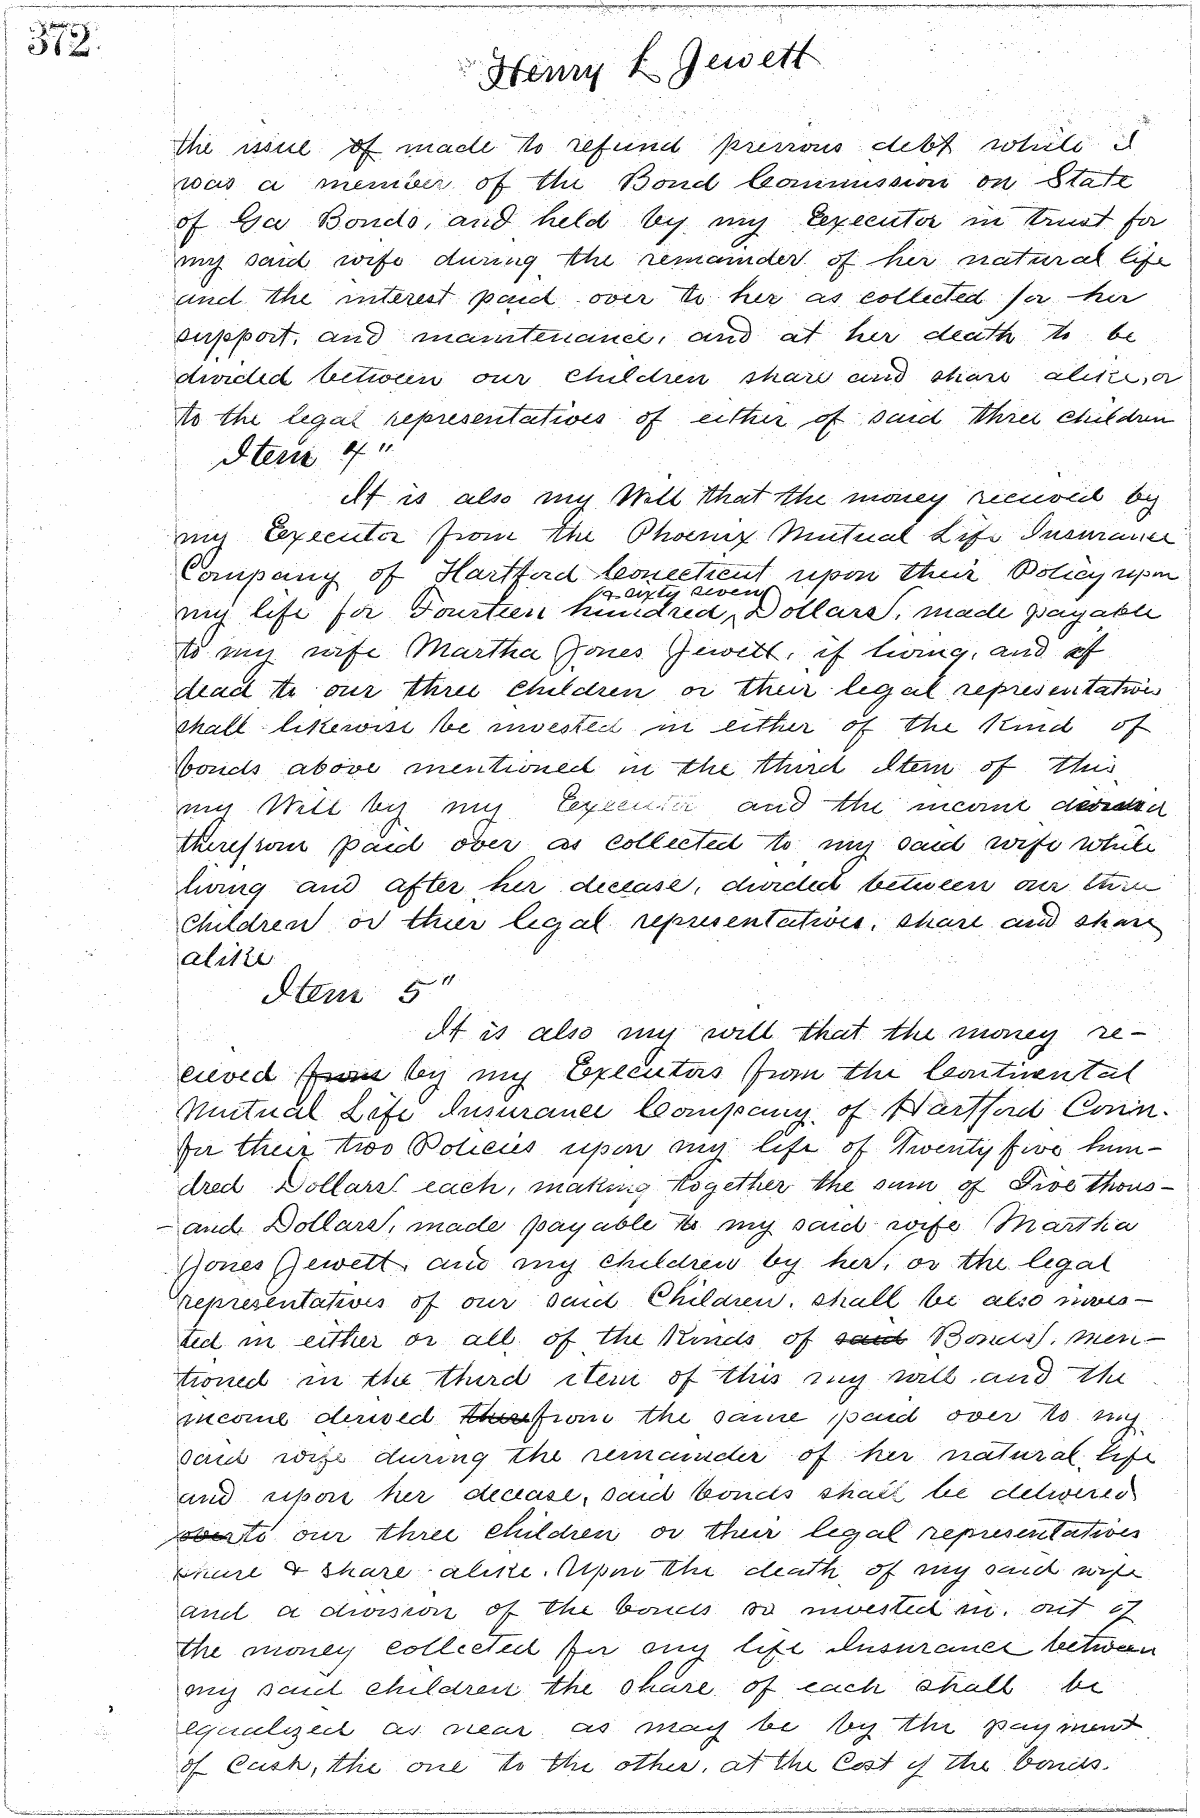 372.
Henry L Jewett
the issue of made to refund previous debt while I
was a member of the Bond Commission on State
of Ga Bonds, and held by my Executor in trust for
my said wife during the remainder of her natural life
and the interest paid over to her as collected for her
support, and maintenance, and at her death to be
divided between our children share and share alike, or
to the legal representatives of either of said three children
Item 4"
It is also my Will that the money recieved by
my Executor from the Phoenix Mutual Life Insurance
Company of Hartford Conecticut upon their Policy upon
& sixty seven
my life for Fourteen hundred Dollars, made payable
to my wife Martha Jones Jewett, if living, and if
dead to our three children or their legal representatives
shall likewise be invested in either of the Kind of
bonds above mentioned in the third Item of this
my Will by my Executor and the income derived
therefrom paid over as collected to my said wife while
living and after her decease, divided between our three
children or thier legal representatives, share and share
alike
Item 5"
It is also my will that the money re-
cieved from by my Executors from the Continental
Mutual Life Insurance Company of Hartford Conn.
for their two Policies upon my life of Twenty five hun-
dred Dollars each, making together the sum of Five thous-
-and Dollars, made payable to my said wife Martha
Jones Jewett, and my children by her, or the legal
representatives of our said Children, shall be also inves-
ted in either or all of the Kinds of said Bonds, men-
tioned in the third item of this my will and the
income derived therefrom the same paid over to my
said wife during the remainder of her natural life
and upon her decease, said bonds shall be delivered
over to our three children or their legal representatives
share & share alike. Upon the death of my said wife
and a division of the bonds so invested in, out of
the money collected for my life Insurance between
my said children the share of each shall be
equalized as near as may be by the payment
of Cash, the one to the other, at the Cost of the bonds.